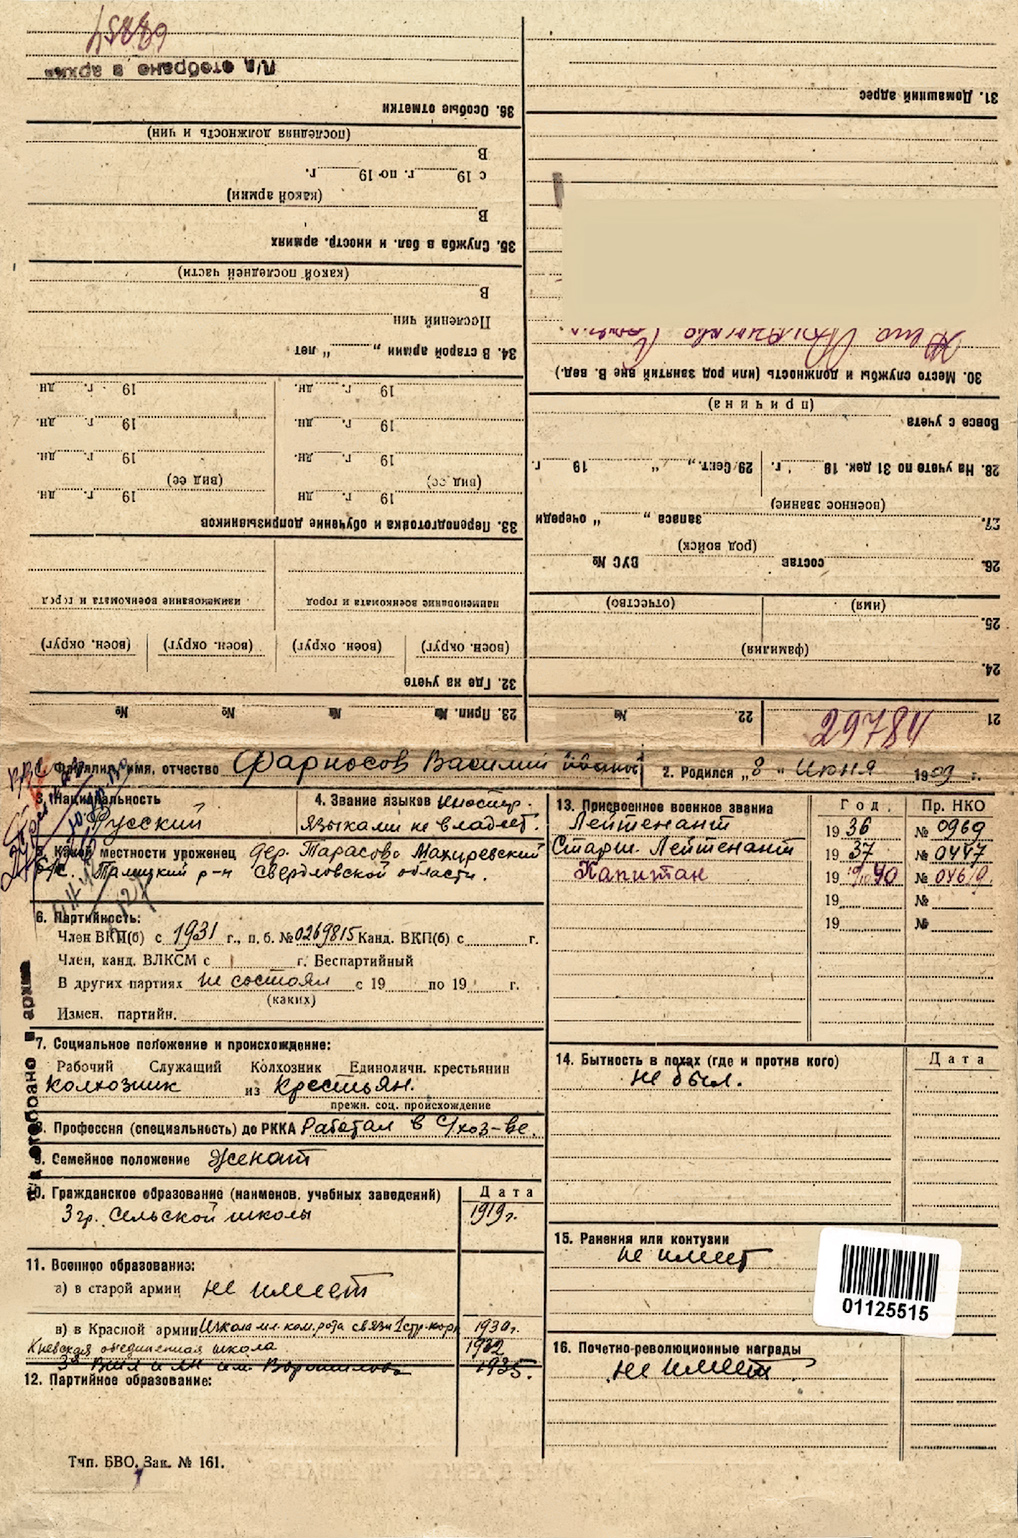 68854
Л/д отобрано в архив
36. Особые отметки
(последняя должность и чин)
В
с 19 г. по 19 г.
(какой армии)
В
35. Служба в бел. и иностр. армиях
(какой последней части)
В
Послений чин
34. В старой армии „ “ лет
19 г. дн. 19 г. дн.
19 г. дн. 19 г. дн.
19 г. дн. 19 г. дн.
(вид сс) (вид сс)
19 г. дн. 19 г. дн.
33. Переподготовка и обучение допризывников
наименование военкомата и город наименование военкомата и город
(воен. округ) (воен. округ) (воен. округ) (воен. округ)
32. Где на учете
23. Прип. № № № №
31. Домашний адрес
Жена
30. Место службы и должность (или род занятий вне В. вед.)
(причина)
Вовсе с учета
28. На учете по 31 дек. 19 г. 29 Сент. „ “ 19 г.
(военное звание)
27. запаса „ “ очереди
(род войск)
26. состав ВУС №
(имя) (отчество)
25.
(фамилия)
24.
21 29784 22. №
Фамилия, имя, отчество Фарносов Василий Иванов
2. Родился „8“ Июня 1909 г.
3. Национальность
Русский
4. Знание языков Иностр.
языками не владеет.
5. Какой местности уроженец дер. Тарасово Махиревский
с/с. Талицкий р-н Свердловской области.
6. Партийность:
Член ВКП(б) с 1931 г., п. б. № 0269815 Канд. ВКП(б) с г.
Член, канд. ВЛКСМ с г. Беспартийный
В других партиях не состоял с 19 по 19 г.
(каких)
Измен. партийн.
7. Социальное положение и происхождение:
Рабочий Служащий Колхозник Единоличн. крестьянин
Колхозник из Крестьян.
прежн. соц. происхождение
8. Профессия (специальность) до РККА Работал в с/хоз-ве.
9. Семейное положение Женат
10. Гражданское образование (наименов. учебных заведений) Дата
3 гр. сельской школы 1919 г.
11. Военное образование:
а) в старой армии не имеет
в) в Красной армии Школа мл. ком. рота связи 1 стр. корп 1930 г.
Киевская объединенная школа 1932
1935.
12. Партийное образование:
Тип. БВО. Зак. № 161.
13. Присвоенное военное звания Год Пр. НКО
Лейтенант 1936 № 0969
Старш. Лейтенант 1937 № 0447
Капитан 1940 № 04619.
19 №
19 №
14. Бытность в походах (где и против кого) Дата
Не был.
15. Ранения или контузии
не имеет
01125515
16. Почетно-революционные награды
Не имеет
Л/д отобрано в архив